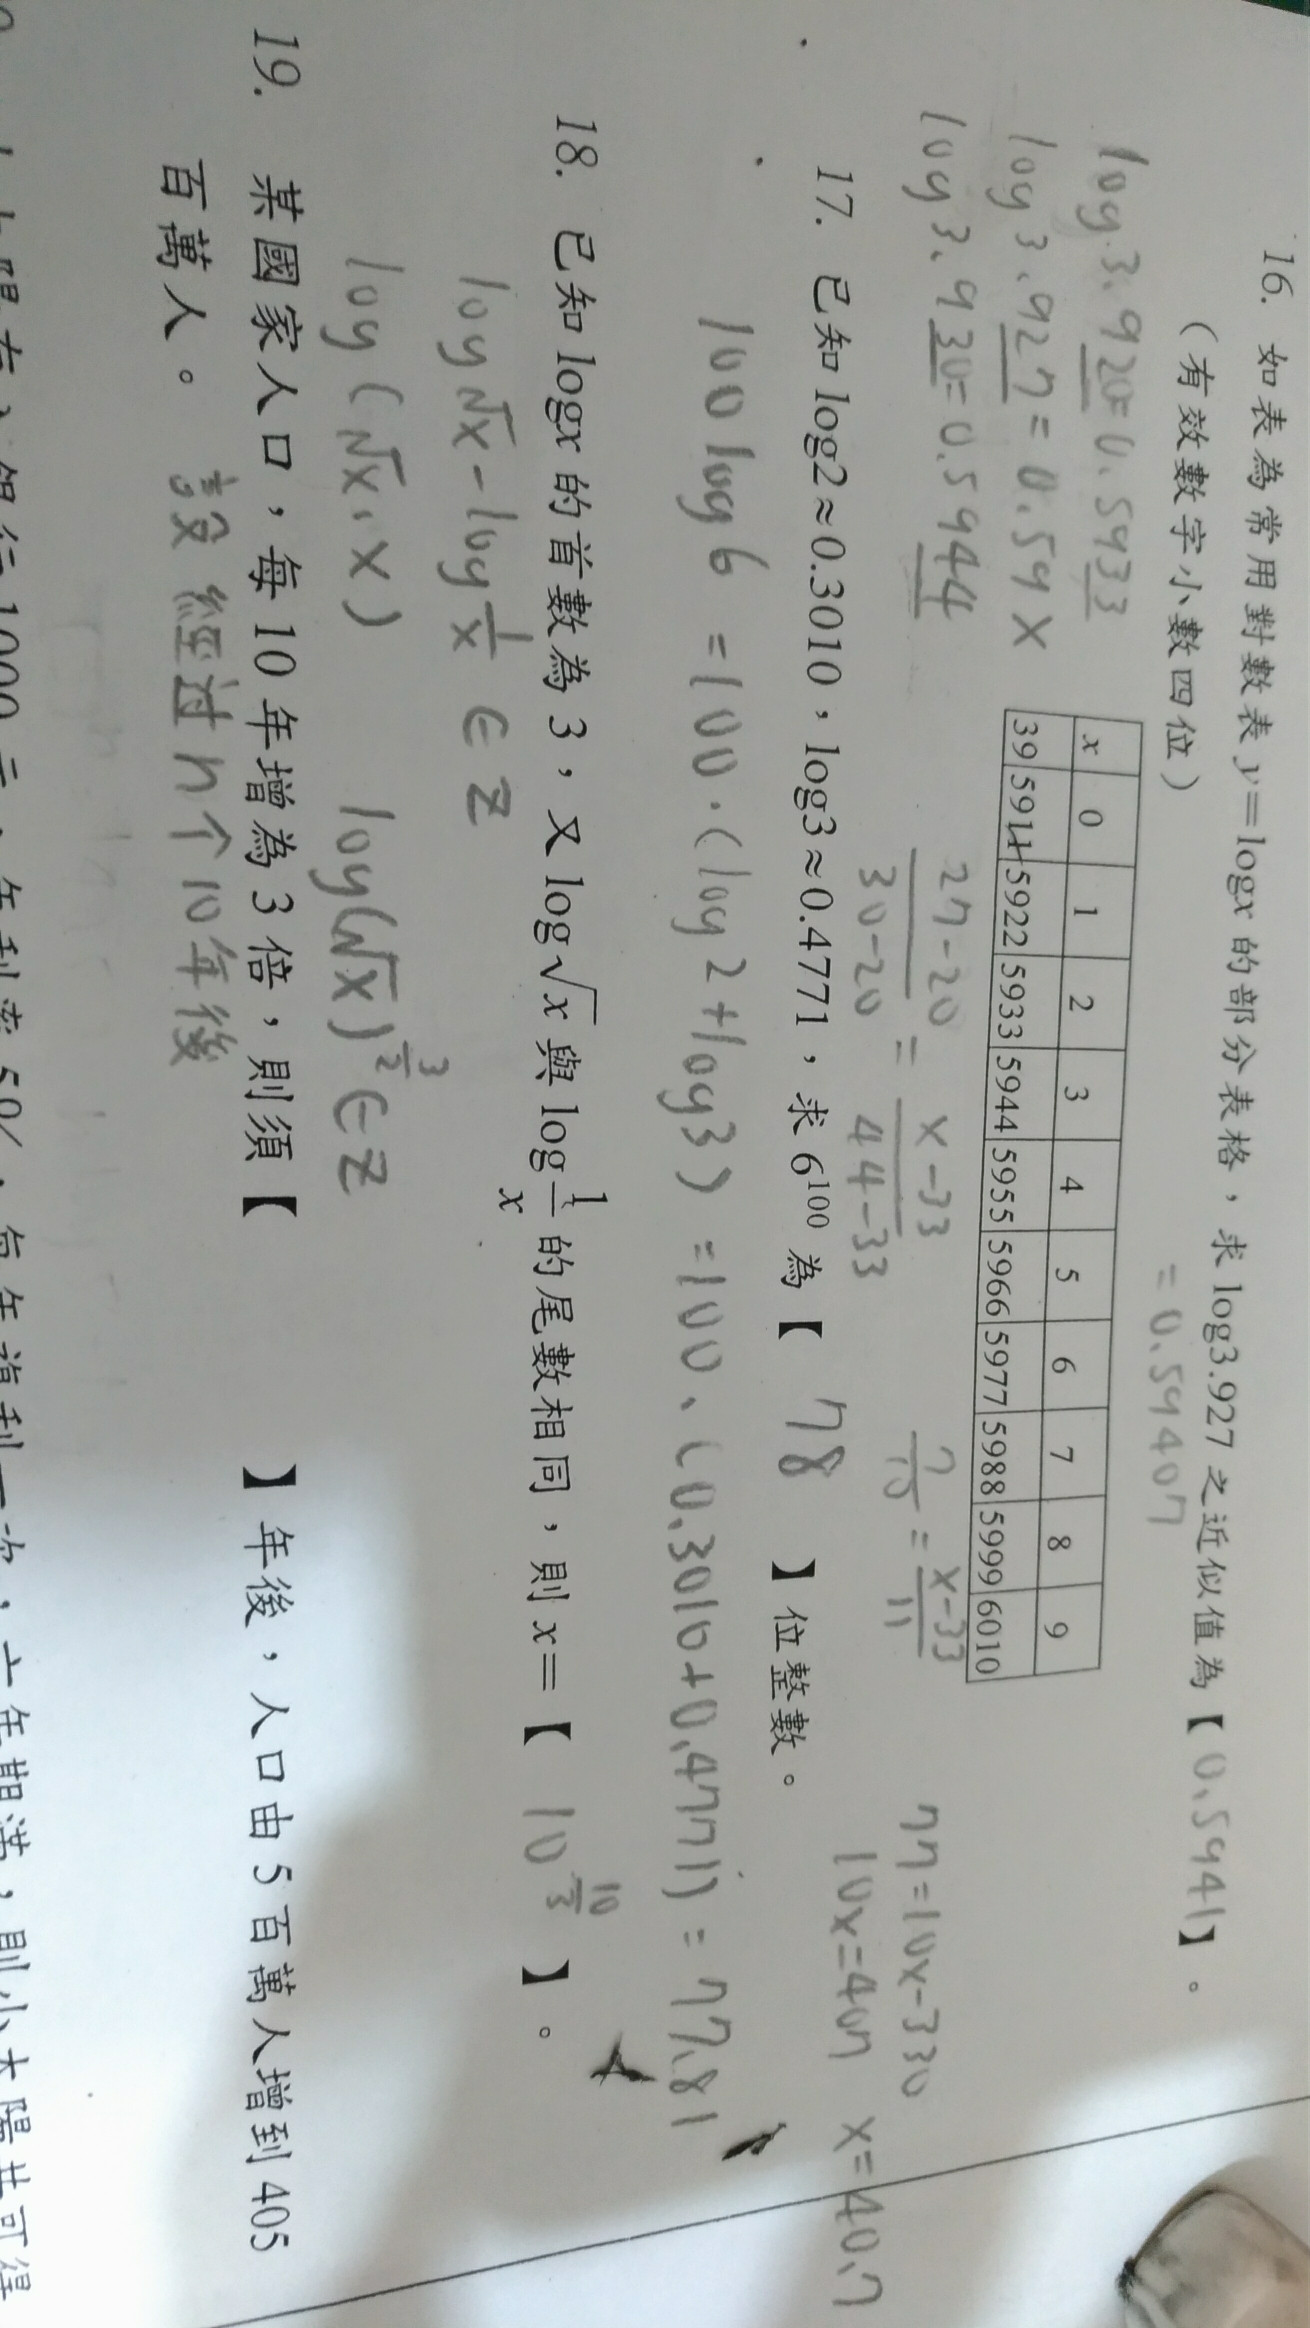 16. 如表為常用對數表 y=logx 的部分表格，求 log3.927 之近似值為【 0.5941】。
（有效數字小數四位）
= 0.59407
log 3.920=0.5933
log 3.927=0.59X
log 3.930=0.5944
x 0 1 2 3 4 5 6 7 8 9
39 5911 5922 5933 5944 5955 5966 5977 5988 5999 6010
27-20/30-20 = x-33/44-33
7/10 = x-33/11
77=10x-330
10x=407 x=40.7
17. 已知 log2≈0.3010，log3≈0.4771，求 6^100 為【 78 】位整數。
100 log 6 = 100·(log 2+log3) = 100·(0.3010+0.4771) = 77.81
18. 已知 logx 的首數為 3，又 log√x 與 log 1/x 的尾數相同，則 x=【 10^(10/3) 】。
log√x - log 1/x ∈ Z
log (√x·x) log(√x)^(3/2) ∈ Z
19. 某國家人口，每 10 年增為 3 倍，則須【 】年後，人口由 5 百萬人增到 405
百萬人。 設 經过 n个 10年後
銀行1000元，年利率 5%，每年複利一次，六年期滿，則小太陽共可得